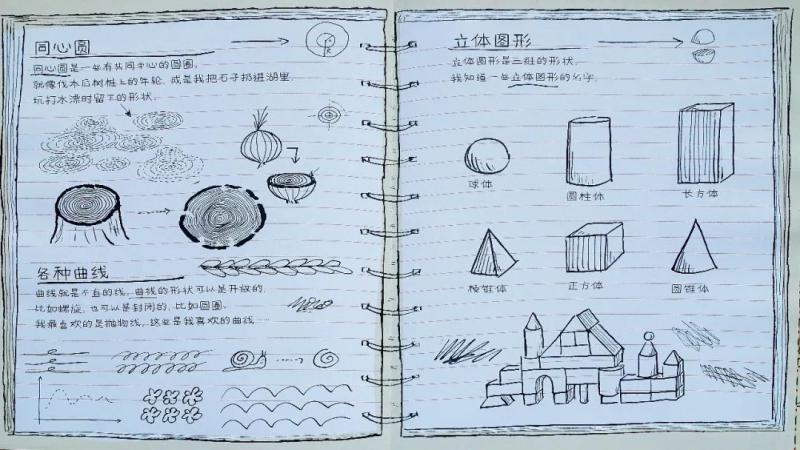 同心圆
同心圆是一些有共同中心的圆圈,
就像伐木后树桩上的年轮,或是我把石子扔进湖里
玩打水漂时留下的形状.
各种曲线
曲线就是不直的线,曲线的形状可以是开放的,
比如螺旋,也可以是封闭的,比如圆圈,
我最喜欢的是抛物线,这些是我喜欢的曲线...
立体图形
立体图形是三维的形状.
我知道一些立体图形的名字.
球体
圆柱体
长方体
棱锥体
正方体
圆锥体